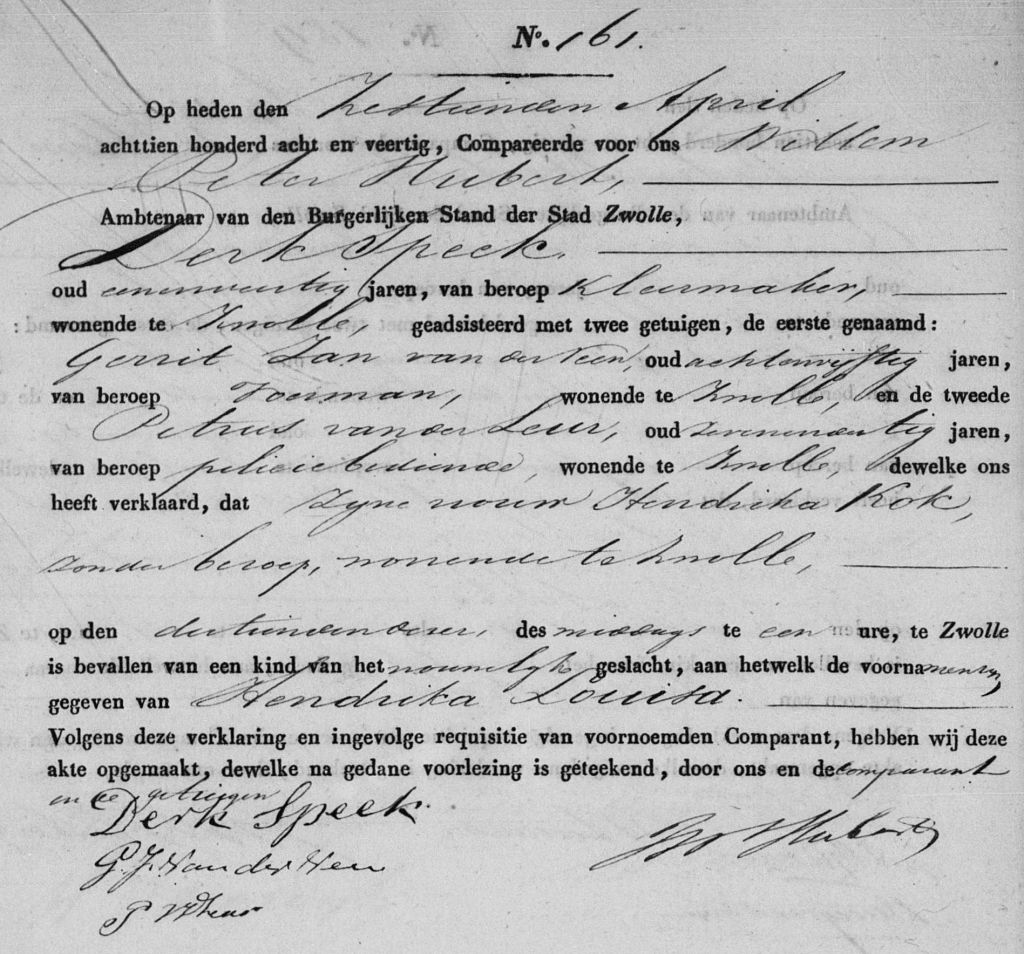 No. 161.
Op heden den Zestienden April
achttien honderd acht en veertig, Compareerde voor ons Willem
Peter Hubert,
Ambtenaar van den Burgerlijken Stand der Stad Zwolle,
Derk Speek.
oud eenenveertig jaren, van beroep Kleermaker,
wonende te Zwolle, geadsisteerd met twee getuigen, de eerste genaamd:
Gerrit Jan van der Veen, oud achtenvijftig jaren,
van beroep Voerman, wonende te Zwolle, en de tweede
Petrus van der Leur, oud zevenendertig jaren,
van beroep policiebediende, wonende te Zwolle, dewelke ons
heeft verklaard, dat zyne vrouw Hendrika Kok,
zonder beroep, wonende te Zwolle,
op den dertienden dezer, des middags te een ure, te Zwolle
is bevallen van een kind van het vrouwelijk geslacht, aan hetwelk de voornamen zyn
gegeven van Hendrika Louisa.
Volgens deze verklaring en ingevolge requisitie van voornoemden Comparant, hebben wij deze
akte opgemaakt, dewelke na gedane voorlezing is geteekend, door ons en de comparant
en de getuigen
Derk Speek.
G. J. Van der Veen
Hubert